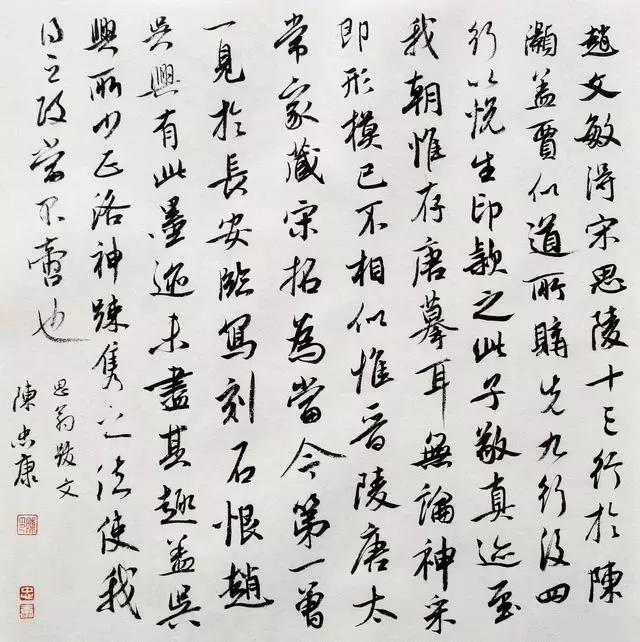 趙文敏得宋思陵十三行於陳
灝蓋賈似道所購先九行後四
行以悅生印款之此子敬真跡至
我朝惟存唐摹耳無論神采
即形模已不相似惟晉陵唐太
常家藏宋拓為當今第一曾
一見於長安臨寫刻石恨趙
吳興有此墨迹未盡其趣蓋吳
興所少正洛神疎雋之法使我
得之故當不啻也
思翁跋文
陳忠康